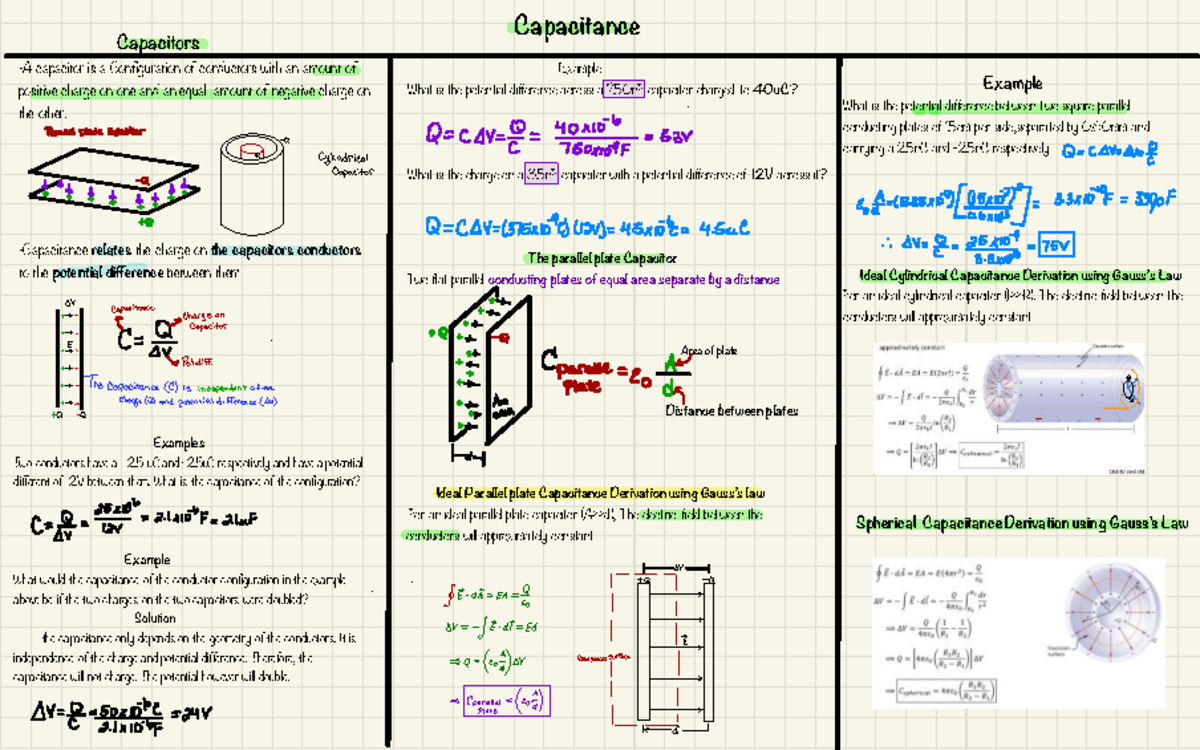 Capacitance
Capacitors
-A capacitor is a Configuration of conductors with an amount of
positive charge on one and an equal amount of negative charge on
the other.
Cylindrical
Capacitor
-Capacitance relates the charge on the capacitors conductors
to the potential difference between them
ΔV
E
Capacitance
Charge on
Capacitor
C = Q/ΔV
Pot. diff.
The Capacitance (C) is independent of the
charge (Q) and potential difference (ΔV)
+Q -Q
Examples
Two conductors have a +25uC and -25uC respectively and have a potential
different of 12V between them. What is the capacitance of the configuration?
C = Q/ΔV = 25x10⁻⁶/12V = 2.1x10⁻⁶F = 2.1uF
Example
What would the capacitance of the conductor configuration in the example
above be if the two charges on the two capacitors were doubled?
Solution
the capacitance only depends on the geometry of the conductors. It is
independence of the charge and potential difference. Therefore, the
capacitance will not change. The potential however will double.
ΔV = Q/C = 50x10⁻⁶C/2.1x10⁻⁶F = 24V
Example
What is the potential difference across a 750nF capacitor charged to 40uC?
Q = CΔV = Q/C = 40x10⁻⁶/750x10⁻⁹F = 53V
What is the charge on a capacitor with a potential difference of 12V across it?
Q = CΔV = (12V) = 4.5uC
The parallel plate Capacitor
Two flat parallel conducting plates of equal area separate by a distance
+Q
-Q
C parallel plate = ε₀ A/d
Area of plate
Distance between plates
Ideal Parallel plate Capacitance Derivation using Gauss's law
For an ideal parallel plate capacitor (A>>d), The electric field between the
conductors will approximately constant
∮E⃗·dA⃗ = EA = Q/ε₀
ΔV = -∫E⃗·dl⃗ = Ed
⇒ Q = (ε₀ A/d)ΔV
⇒ C parallel plate = (ε₀ A/d)
Gaussian Surface
ΔV
+Q -Q
E⃗
d
Example
What is the potential difference between two square parallel
conducting plates of 15cm per side, separated by and
carrying a +25nC and -25nC respectively
∴ ΔV = Q/C = = 75V
Ideal Cylindrical Capacitance Derivation using Gauss's Law
For an ideal cylindrical capacitor The electric field between the
conductors will approximately constant
approximately constant
∮E⃗·dA⃗ = EA = E(2πrl) = Q/ε₀
ΔV = -∫E⃗·dl⃗ = -Q/2πε₀l ∫dr/r
⇒ ΔV = Q/2πε₀l ln(R₁/R₂)
Gaussian surface
Spherical Capacitance Derivation using Gauss's Law
∮E⃗·dA⃗ = EA = E(4πr²) = Q/ε₀
ΔV = -∫E⃗·dl⃗ = -Q/4πε₀ ∫dr/r²
⇒ ΔV = Q/4πε₀ (1/R₁ - 1/R₂)
⇒ Q = [4πε₀(R₁R₂/R₂ - R₁)]ΔV
⇒ C spherical = 4πε₀(R₁R₂/R₂ - R₁)
Gaussian
surface